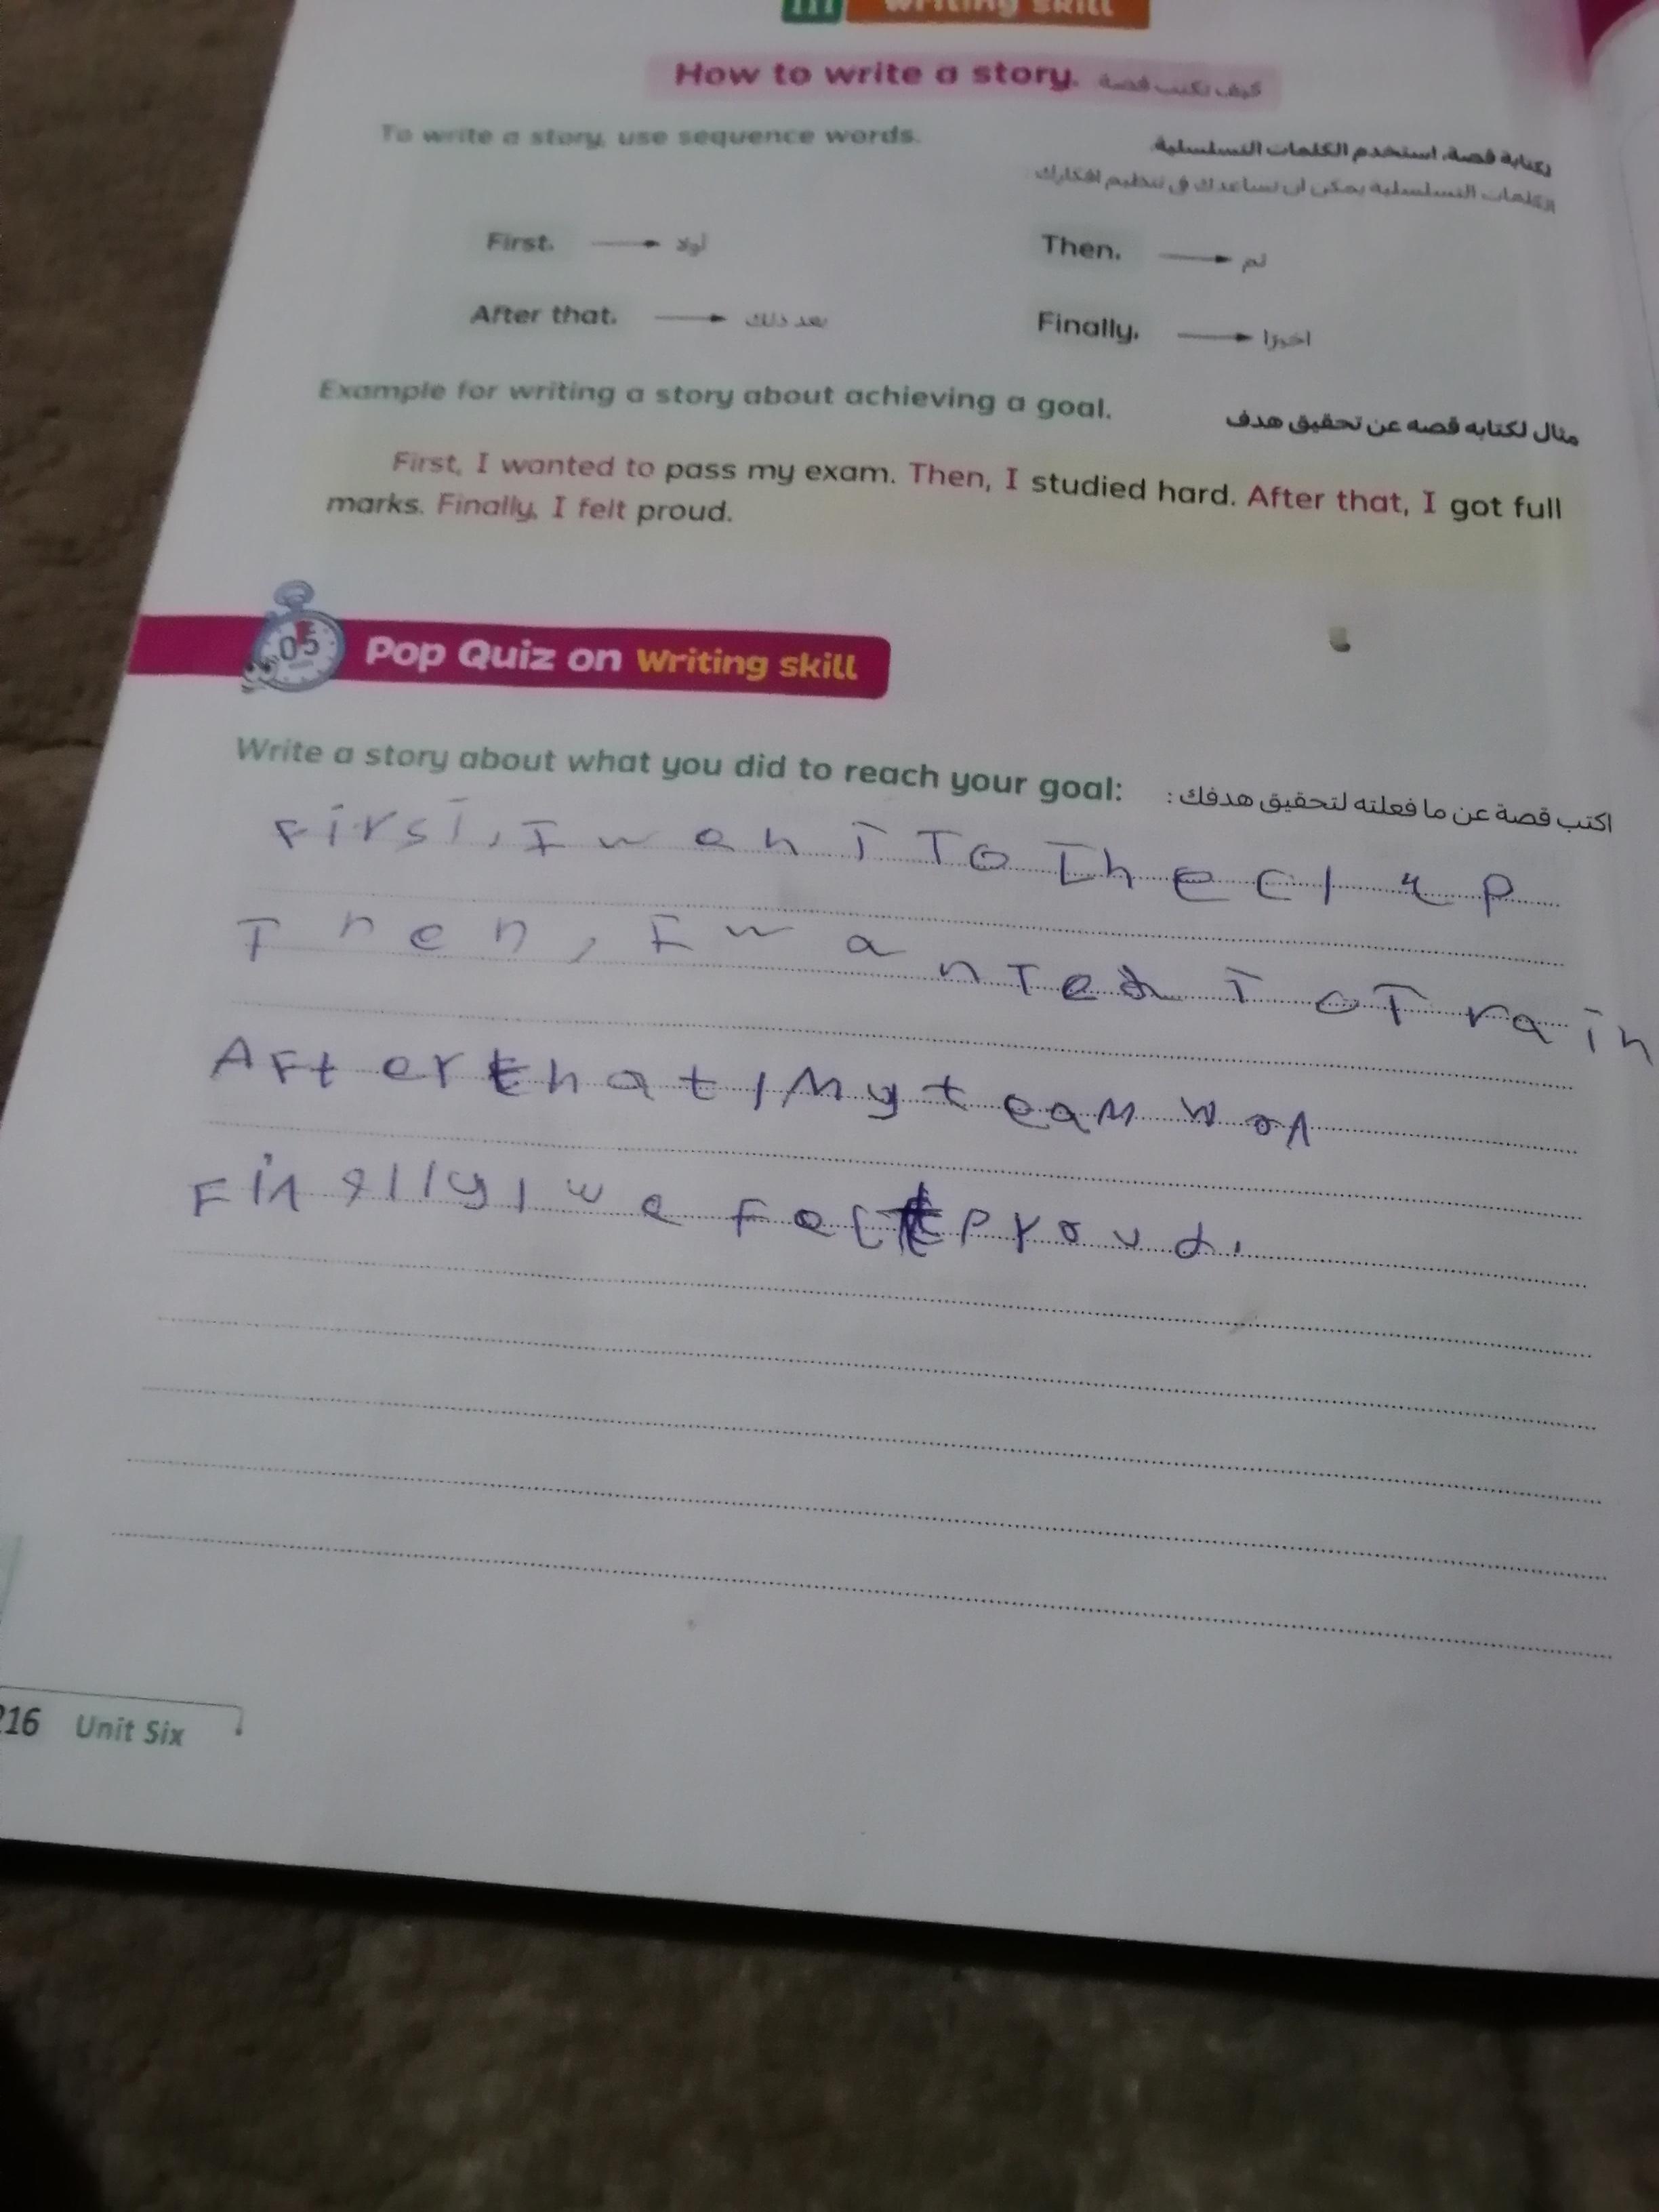 III Writing skill
How to write a story. كيف تكتب قصة
To write a story, use sequence words. لكتابة قصة، استخدم الكلمات التسلسلية.
الكلمات التسلسلية يمكن ان تساعدك في تنظيم افكارك
First. أولا Then. ثم
After that. بعد ذلك Finally. اخيرًا
Example for writing a story about achieving a goal. مثال لكتابه قصه عن تحقيق هدف
First, I wanted to pass my exam. Then, I studied hard. After that, I got full
marks. Finally, I felt proud.
05 Pop Quiz on Writing skill
Write a story about what you did to reach your goal: اكتب قصة عن ما فعلته لتحقيق هدفك :
First, I went To The club
Then, I wanted To Train
After that, My team won
Finally, we felt proud.
216 Unit Six